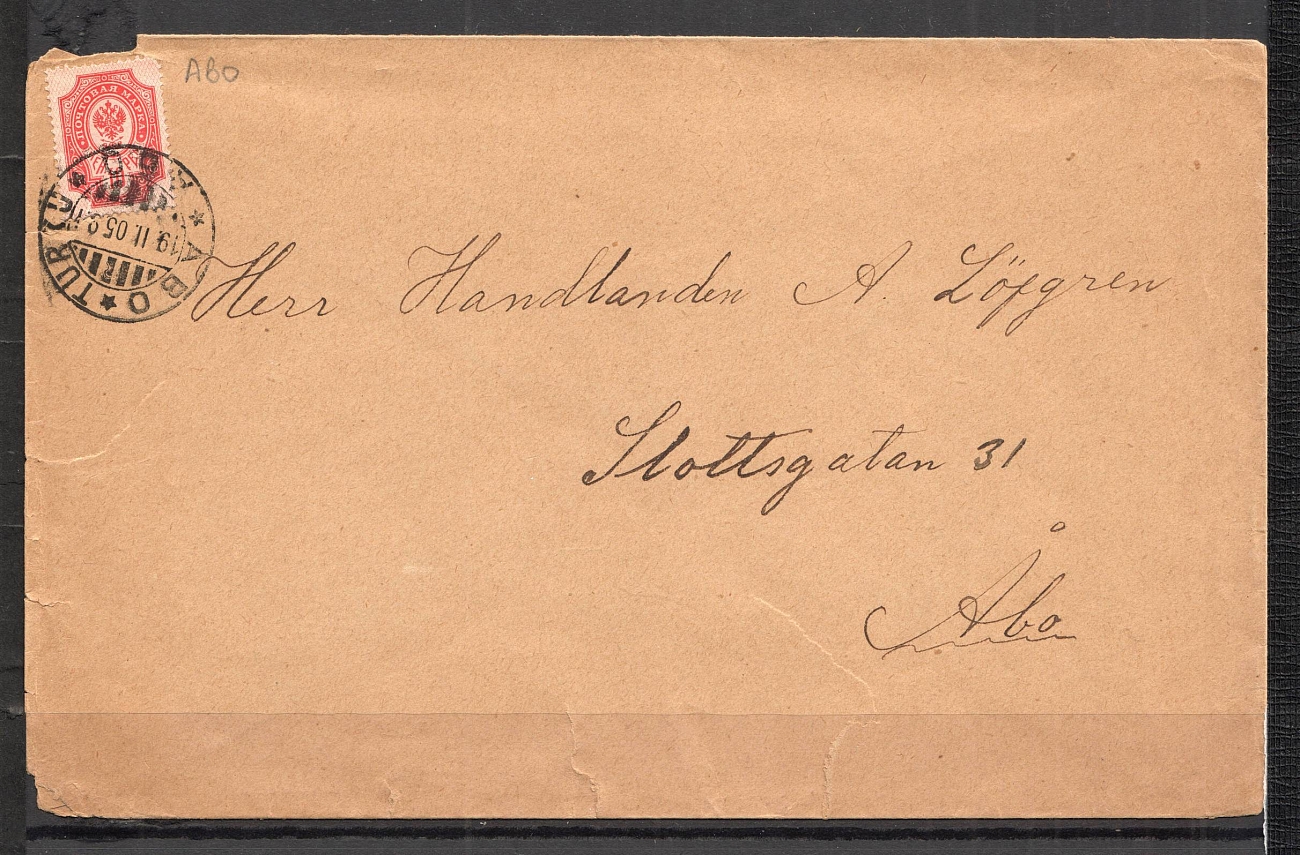 ABO
ПОЧТОВАЯ МАРКА
ABO ★ TURKU
19. II. 05
Herr Handlanden A. Löfgren
Slottsgatan 31
Åbo